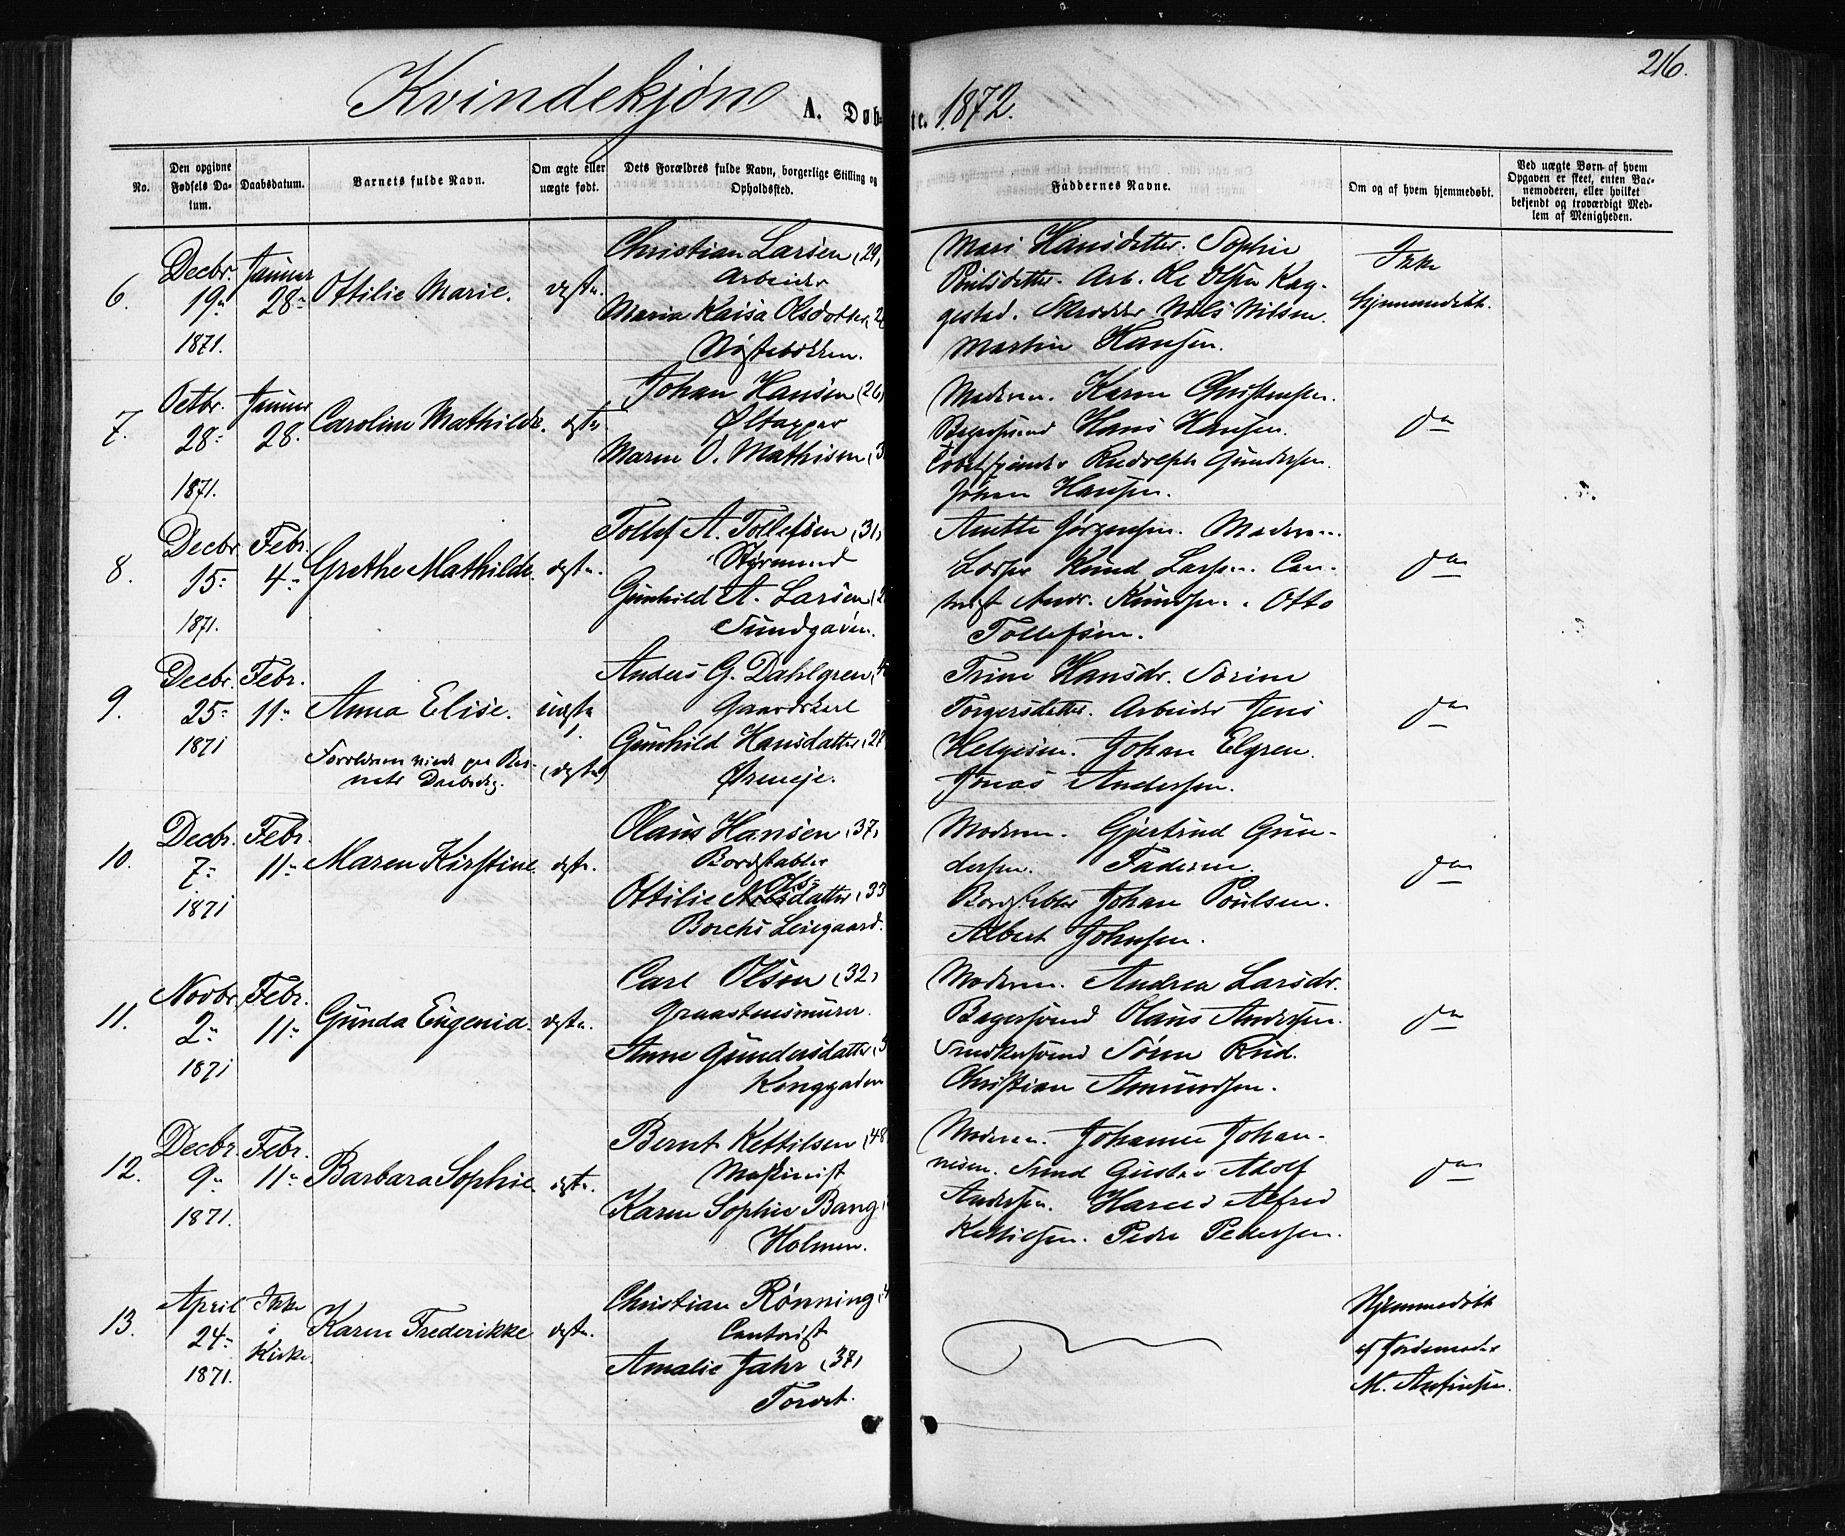 216.
Kvindekjøn A. Døbte. 1872.
No.
Den opgivne Fødsels Datum.
Daabsdatum.
Barnets fulde Navn.
Om ægte eller uægte født.
Dets Forældres fulde Navn, borgerlige Stilling og Opholdssted.
Faddernes Navne.
Om og af hvem hjemmedøbt.
Ved uægte Børn af hvem Opgaven er skeet, enten Barnemoderen, eller hvilket bekjendt og troværdigt Medlem af Menigheden.
6.
Decbr. 19n 1871.
Januar 28n
Ottilie Marie.
ægte.
Christian Larsen (29)
Arbeider
Maria Kaisa Olsdotter
Nøstebakken.
Mari Hansdatter. Sophie
Poulsdatter. Arb. Ole Olsen Kag-
gestad. Skrædder Nils Nilsen.
Martin Hansen.
Ikke
hjemmedøbt.
7.
Octbr. 28- 1871.
Januar 28.
Caroline Mathilde.
ægte
Johan Hansen (26)
Øltapper
Maren O. Mathisen
Moderen. Karen Christensen.
Bagersvend Hans Hansen.
Rudolph Gundersen.
Johan Hansen.
do
8.
Decbr. 15- 1871.
Febr. 4n
Grethe Mathilde.
ægte.
Tollef A. Tollefsen (31)
Styrmand
Gunhild A. Larsen
Sundgaden.
Anette Jørgensen. Moderen.
Lodser Knud Larsen. Con-
torist Andr. Knudsen. Otto
Tollefsen.
do
9.
Decbr. 25- 1871
Febr. 11n
Anna Elise.
Forældrene viede paa Bar-
nets Daabsdag.
uægte
(ægte)
Anders G. Dahlgren
Gaardskarl
Gunhild Hansdatter
Øreneje.
Trine Hansdr. Sorine
Torgersdatter. Arbeider Jens
Helgesen. Johan Elgren.
Jonas Andersen.
do
10.
Decbr. 7- 1871
Febr. 11n
Maren Kirstine.
ægte.
Olaus Hansen (37)
Bordstabler
Ottilie Olsdatter (33
Borchs Leiegaard.
Moderen. Gjertrud Gun-
dersen. Faderen.
Bordstabler Johan Poulsen.
Albert Johnsen.
do
11.
Novbr. 2n 1871
Febr. 11n
Gunda Eugenia.
ægte.
Carl Olson (32)
Graastensmurer.
Anne Gundersdatter
Konggaden
Moderen. Andrea Larsdr.
Bagersvend Olaus Andersen.
Snedkersvend Søren Rud.
Christian Amundsen.
do
12.
Decbr. 9n 1871.
Febr. 11n
Barbara Sophie.
ægte.
Bernt Kettilsen (48
Maskinist
Karen Sophie Bang
Holmen.
Moderen. Johanne Johan-
nesen. Gustav Adolf
Andersen. Alfred
Kettilsen. Peder Pedersen.
do
13.
April 24- 1871.
Ikke
i
Kirke.
Karen Frederikke
ægte.
Christian Rønning
Contorist
Amalie Jahr (37)
Torvet.
Hjemmedøbt
af Jordemoder
M. Anfinsen.